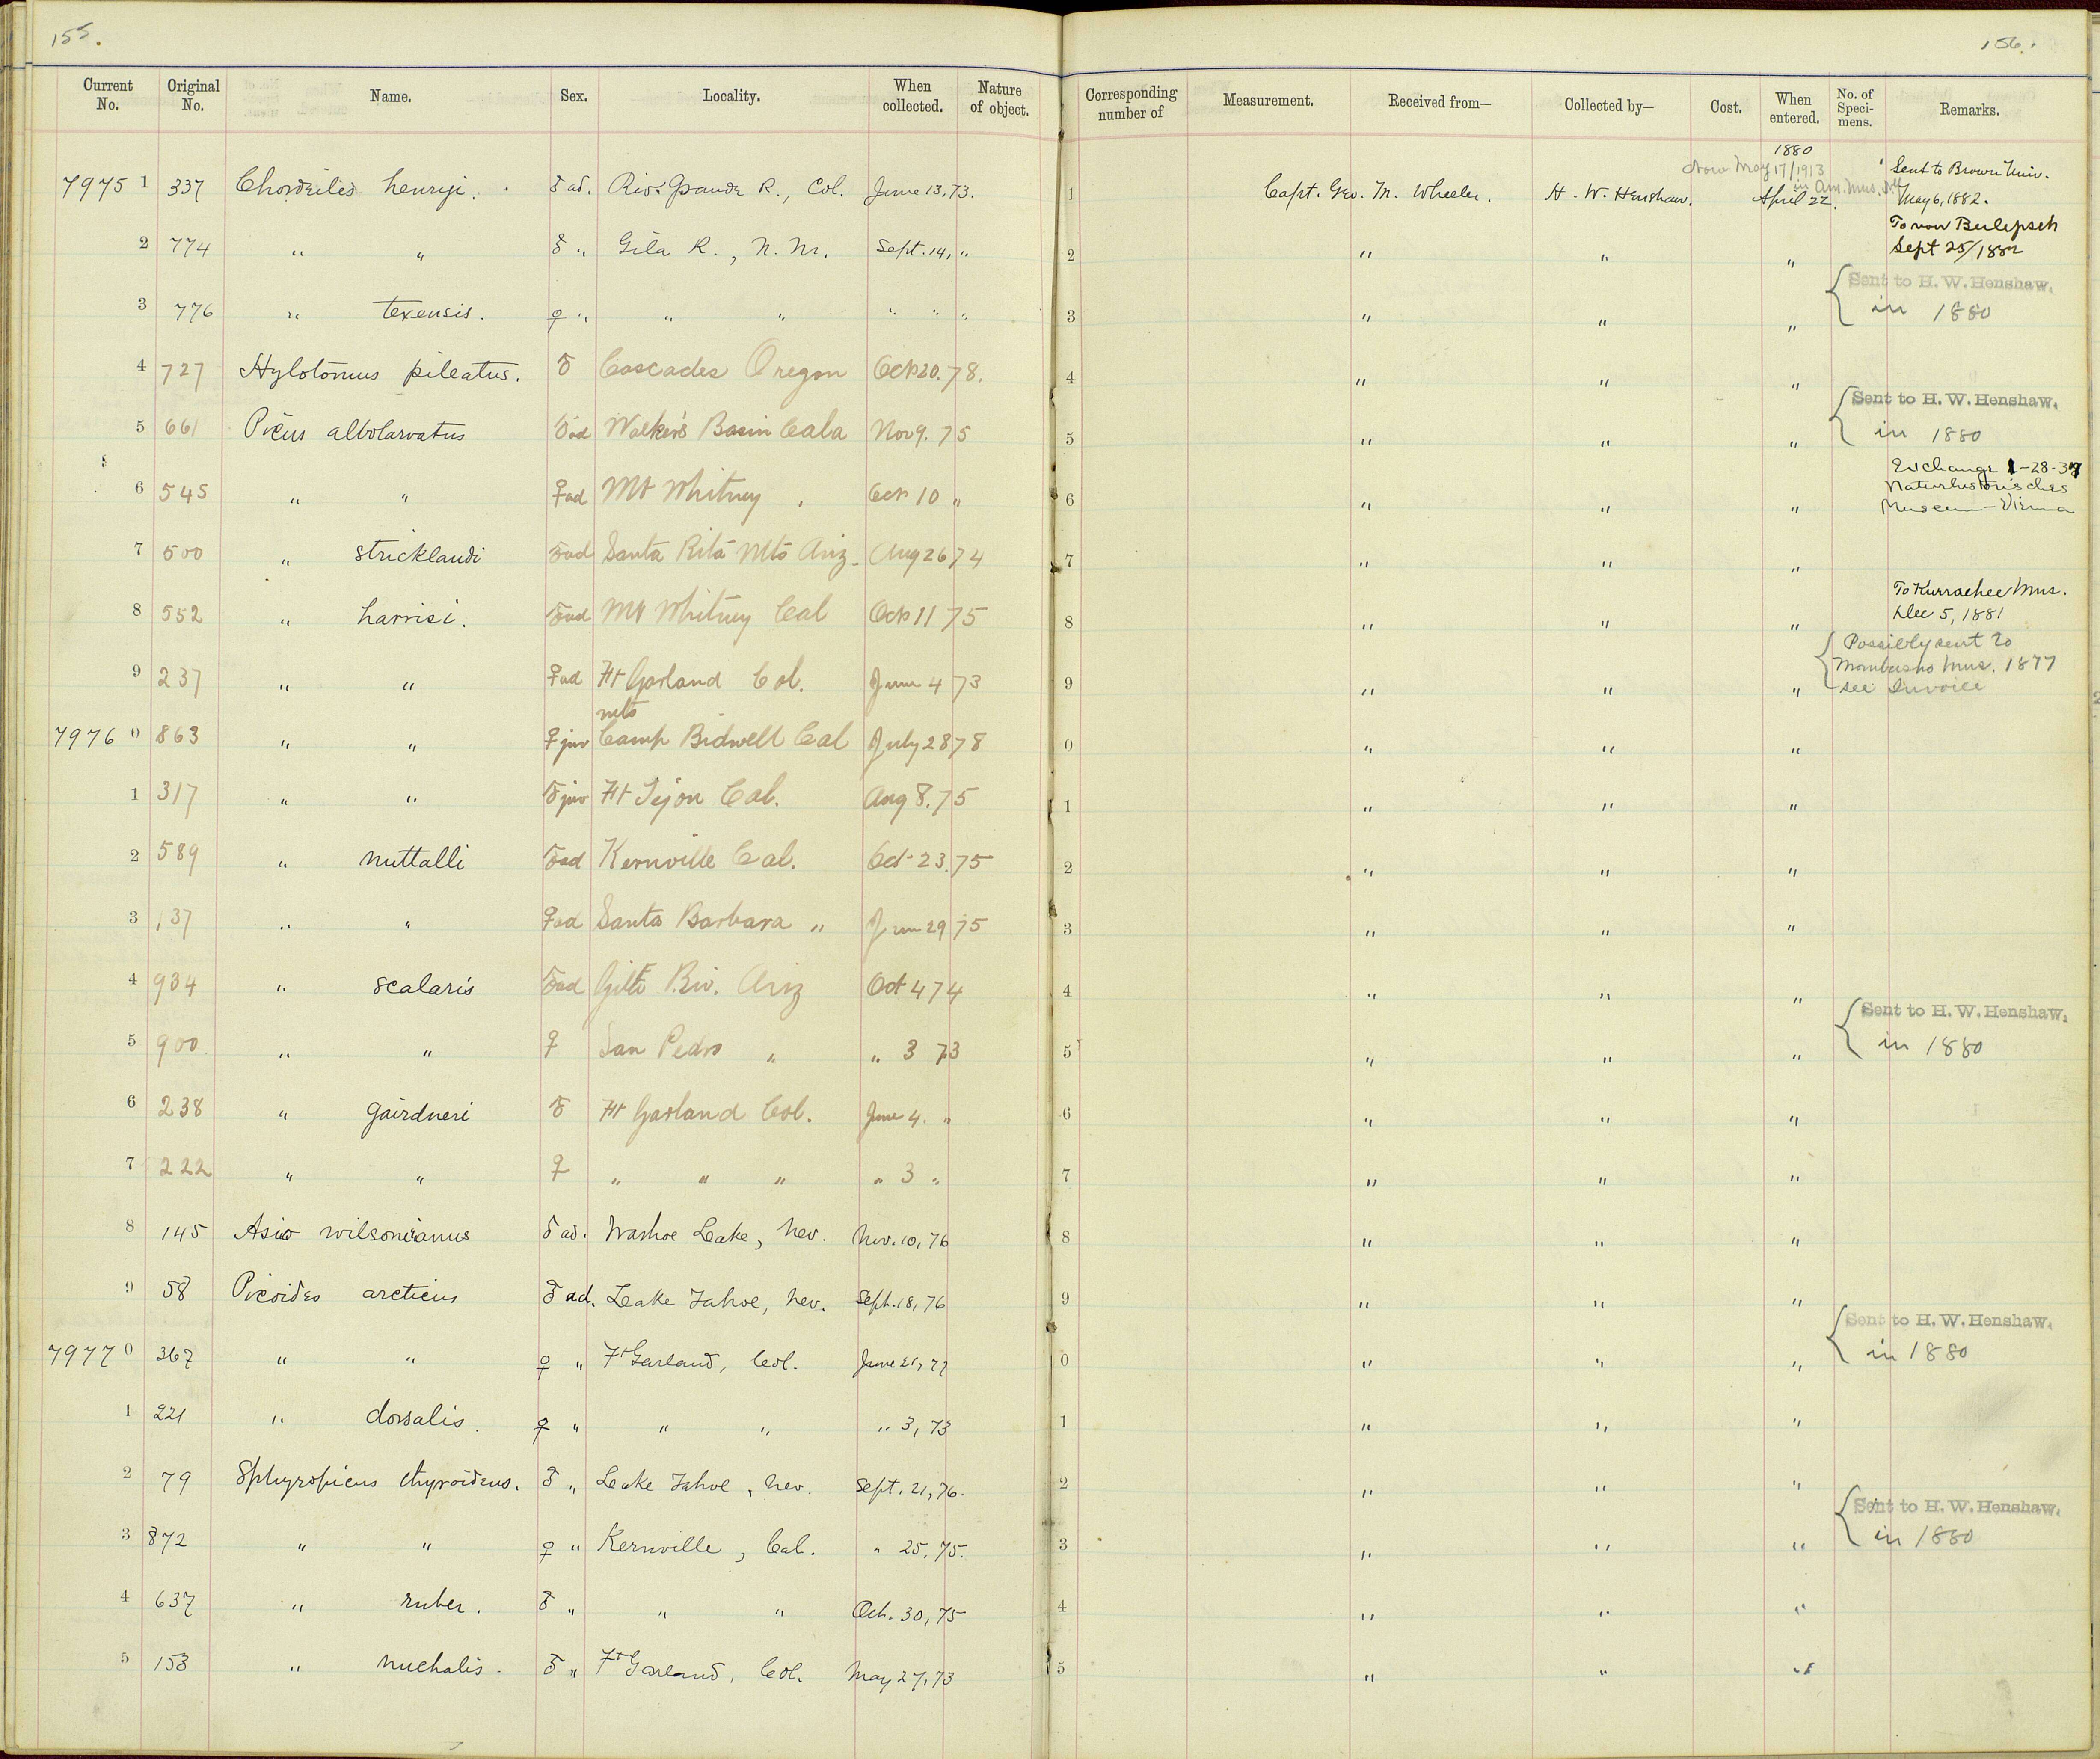 155.
Current No. Original No. Name. Sex. Locality. When collected. Nature of object.
79751 337 Chordeiles henryi. ♂ ad. Rio Grande R., Col. June 13, 73.
2 774 " " ♂ " Gila R., N. M. Sept. 14, "
3 776 " texensis. ♀ " " " " " "
4 727 Hylotomus pileatus. ♂ Cascades Oregon Oct 20. 78.
5 661 Picus albolarvatus ♂ad Walker's Basin Cala Nov 9. 75
6 545 " " ♀ad Mt Whitney " Oct 10 "
7 500 " stricklandi ♂ad Santa Rita Mts Ariz. Aug 26 74
8 552 " harrisi. ♂ad Mt Whitney Cal Oct 11 75
9 237 " " ♀ad Ft Garland Col. June 4 73
mts
79760 863 " " ♀ juv Camp Bidwell Cal July 28 78
1 317 " " ♂ juv Ft Tejon Cal. Aug 8. 75
2 589 " nuttalli ♂ad Kernville Cal. Oct 23. 75
3 137 " " ♀ad Santa Barbara " Jun 29 75
4 934 " scalaris ♂ad Riv. Ariz Oct 4 74
5 900 " " ♀ San Pedro " " 3 73
6 238 " gairdneri ♂ Ft Garland Col. June 4. "
7 222 " " ♀ " " " " 3 "
8 145 Asio wilsonianus ♂ ad. Washoe Lake, Nev. Nov. 10, 76
9 58 Picoides arcticus ♂ ad. Lake Tahoe, Nev. Sept. 18, 76
79770 367 " " ♀ " Ft Garland, Col. June 21,
1 221 " dorsalis. ♀ " " " " 3, 73
2 79 Sphyropicus thyroideus. ♂ " Lake Tahoe, Nev. Sept. 21, 76.
3 872 " " ♀ " Kernville, Cal. " 25, 75.
4 637 " ruber. ♂ " " " Oct. 30, 75
5 158 " nuchalis. ♂ " Ft Garland, Col. May 27, 73
156.
Corresponding number of Measurement. Received from— Collected by— Cost. When entered. No. of Specimens. Remarks.
1880
Now May 17/1913
in Am. Mus. N.Y.
Sent to Brown Univ.
1 Capt. Geo. M. Wheeler. H. W. Henshaw. April 22. May 6, 1882.
To von Berlepsch
2 " " " Sept 25/1882
Sent to H. W. Henshaw.
3 " " " in 1880
4 " " "
Sent to H. W. Henshaw.
5 " " " in 1880
Exchange 1-28-37
Naturhistorisches
6 " " " Museum - Vienna
7 " " "
To Kurrachee Mus.
8 " " " Dec 5, 1881
Possibly sent to
Mombusho Mus. 1877
9 " " " see Invoice
0 " " "
1 " " "
2 " " "
3 " " "
4 " " "
Sent to H. W. Henshaw.
5 " " " in 1880
6 " " "
7 " " "
8 " " "
9 " " "
Sent to H. W. Henshaw.
0 " " " in 1880
1 " " "
2 " " "
Sent to H. W. Henshaw.
3 " " " in 1880
4 " " "
5 " " "